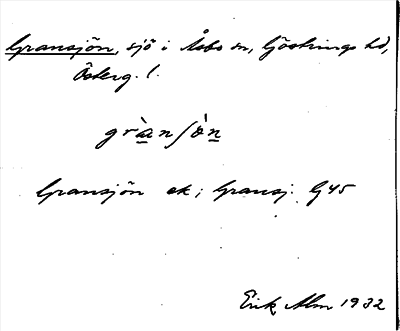 Gransjön, sjö i Åsbo sn, Göstrings hd,
Österg. l.
gràn∫òn
Gransjön ek; Gransj. G45
Erik Alm 1932